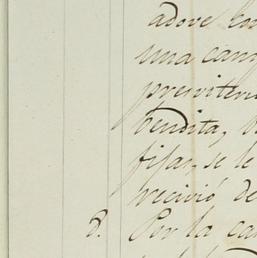 adove con
una cam
presvitero
bendita, 
fijar, se le
recivió, de
8. Por la ca